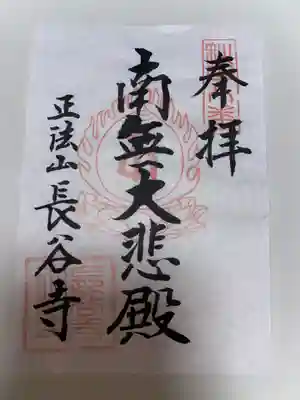 奉拝
南無大悲殿
正法山長谷寺